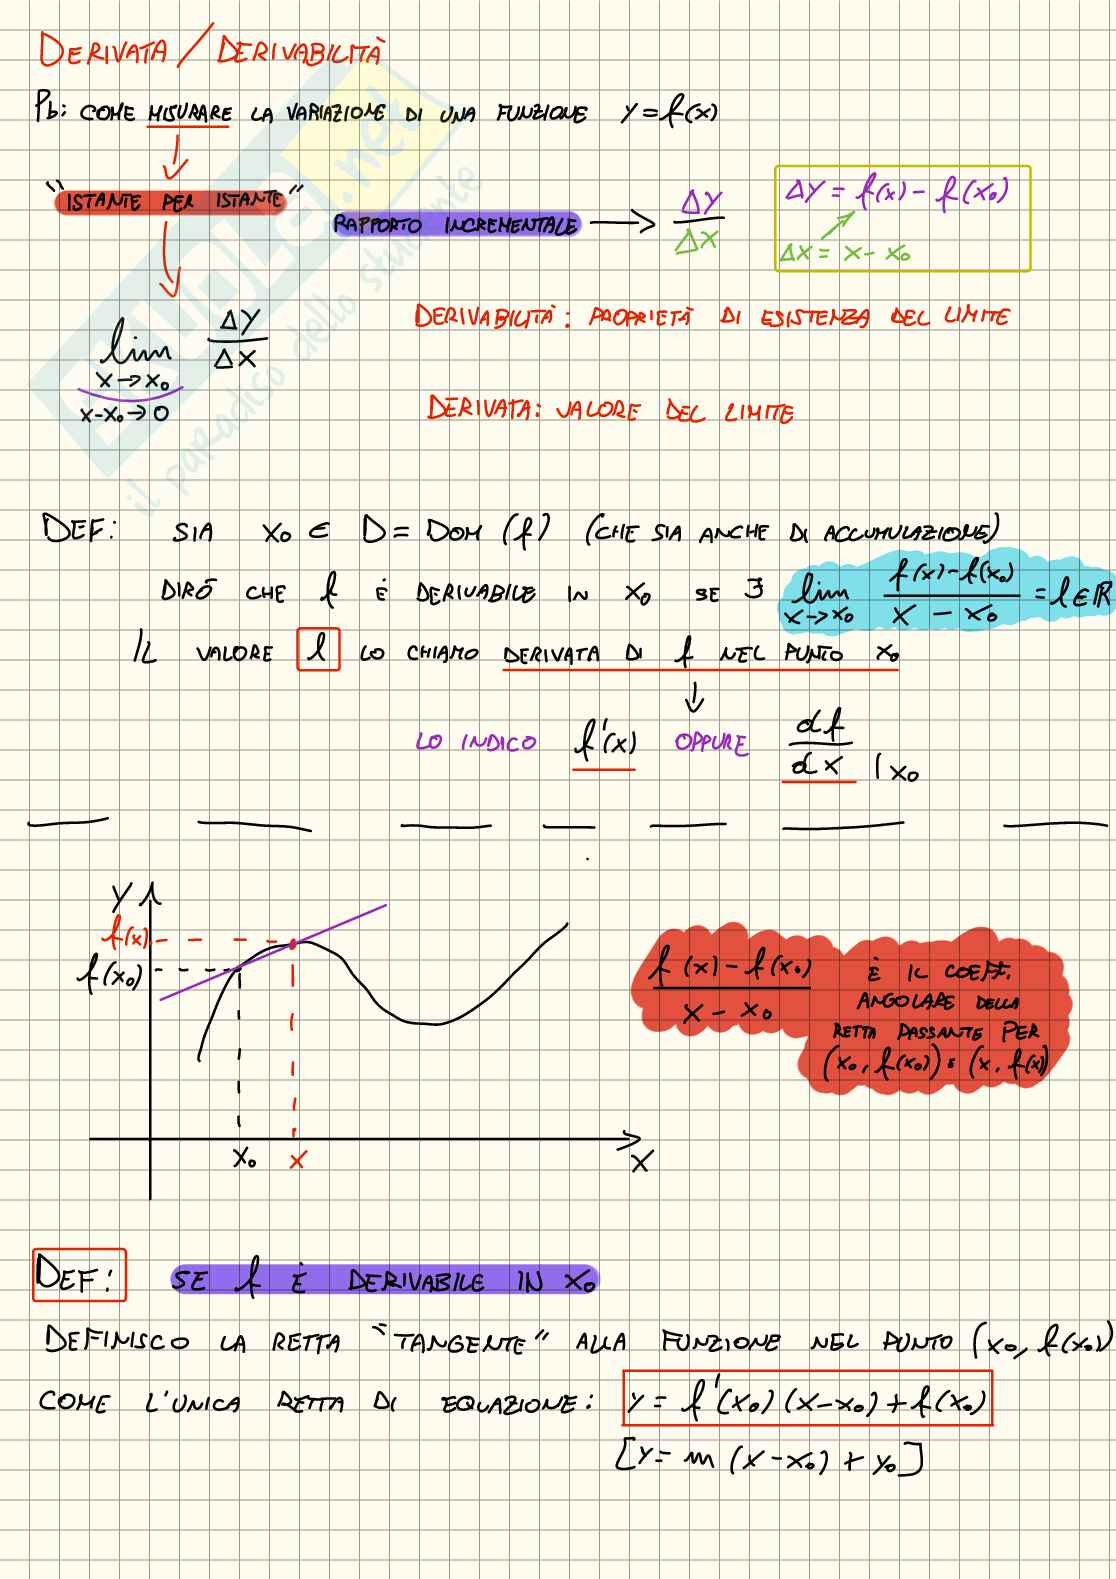 DERIVATA / DERIVABILITÀ
Pb: COME MISURARE LA VARIAZIONE DI UNA FUNZIONE y = f(x)
"ISTANTE PER ISTANTE"
RAPPORTO INCREMENTALE → Δy/Δx
Δy = f(x) - f(x₀)
Δx = x - x₀
lim x→x₀ Δy/Δx
x-x₀→0
DERIVABILITÀ: PROPRIETÀ DI ESISTENZA DEL LIMITE
DERIVATA: VALORE DEL LIMITE
il paradiso dello studente
.net
DEF: SIA x₀ ∈ D = DOM (f) (CHE SIA ANCHE DI ACCUMULAZIONE)
DIRÒ CHE f È DERIVABILE IN x₀ SE ∃ lim x→x₀ f(x)-f(x₀)/x - x₀ = l ∈ ℝ
IL VALORE l LO CHIAMO DERIVATA DI f NEL PUNTO x₀
↓
LO INDICO f'(x) OPPURE df/dx |x₀
y
f(x)
f(x₀)
x₀ x x
f(x)-f(x₀)/x - x₀ È IL COEFF.
ANGOLARE DELLA
RETTA PASSANTE PER
(x₀, f(x₀)) E (x, f(x))
DEF: SE f È DERIVABILE IN x₀
DEFINISCO LA RETTA "TANGENTE" ALLA FUNZIONE NEL PUNTO (x₀, f(x₀))
COME L'UNICA RETTA DI EQUAZIONE: y = f'(x₀) (x-x₀) + f(x₀)
[y = m (x - x₀) + y₀]